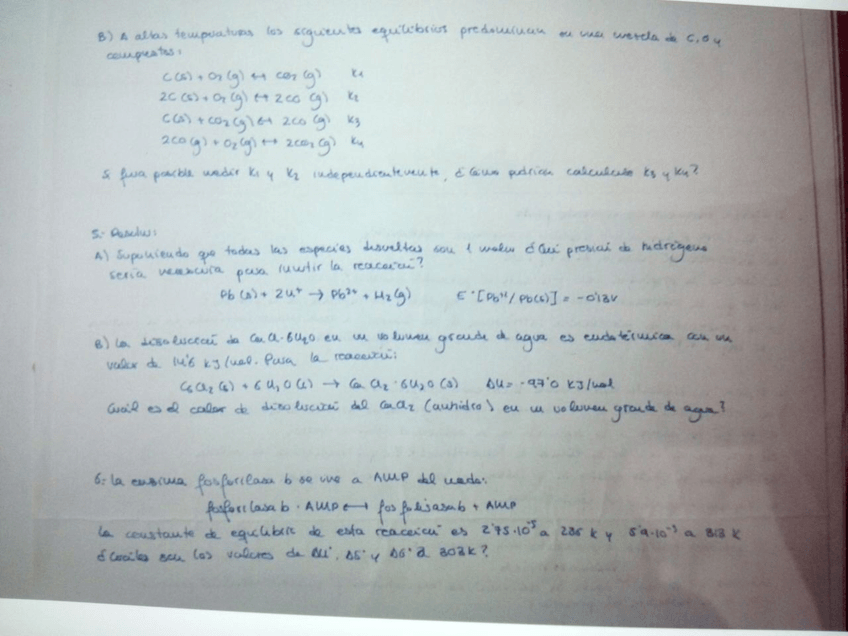 B) A altas temperaturas los siguientes equilibrios predominan en una mezcla de C, O y
compuestos:
C(s) + O₂(g) ↔ CO₂(g) K₁
2C(s) + O₂(g) ↔ 2CO(g) K₂
C(s) + CO₂(g) ↔ 2CO(g) K₃
2CO(g) + O₂(g) ↔ 2CO₂(g) K₄
Si fuera posible medir K₁ y K₂ independientemente, ¿Cómo podrían calcularse K₃ y K₄?
5.- Resolver:
A) Suponiendo que todas las especies disueltas son 1 molar ¿Qué presión de hidrógeno
sería necesaria para invertir la reacción?
Pb(s) + 2H⁺ → Pb²⁺ + H₂(g) E°[Pb²⁺/Pb(s)] = -0'13V
B) La disolución de CaCl·6H₂O en un volumen grande de agua es endotérmica, con un
valor de 14'6 kJ/mol. Para la reacción:
CaCl₂(s) + 6H₂O(l) → CaCl₂·6H₂O(s) ΔH = -97'0 kJ/mol
Cuál es el calor de disolución del CaCl₂ (anhidro) en un volumen grande de agua?
6.- La enzima fosforilasa b se une a AMP del modo:
fosforilasa b · AMP ↔ fosforilasa b + AMP
La constante de equilibrio de esta reacción es 2'75·10⁻⁵ a K y 5'9·10⁻⁵ a 313 K
¿Cuáles son los valores de ΔH°, ΔS° y ΔG° a 303 K?